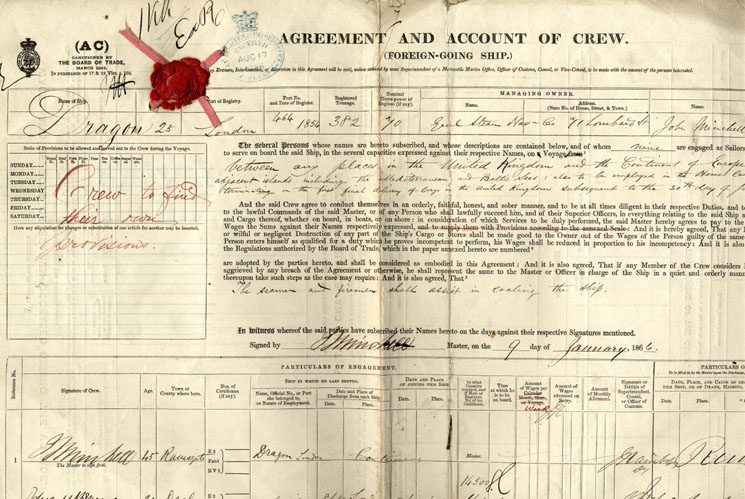 (AC)
SANCTIONED BY
THE BOARD OF TRADE,
IN PURSUANCE OF 17 & 18 VICT. c. 104.
AUG 17
AGREEMENT AND ACCOUNT OF CREW.
(FOREIGN-GOING SHIP.)
Any Erasure, Interlineation, or Alteration in this Agreement will be void, unless attested by some Superintendent of a Mercantile Marine Office, Officer of Customs, Consul, or Vice-Consul, to be made with the consent of the persons interested.
Name of Ship.
Port of Registry.
Port No. and Date of Register.
Registered Tonnage.
Nominal Horse-power of Engines (if any).
MANAGING OWNER.
Name.
Address.
(State No. of House, Street, & Town.)
Name.
Dragon 25
London
464 1854
382
70
Genl Steam Navn Co
71 Lombard St
John Minshell
Scale of Provisions to be allowed and served out to the Crew during the Voyage.
SUNDAY
MONDAY
TUESDAY
WEDNESDAY
THURSDAY
FRIDAY
SATURDAY
Crew to find
their own
provisions
The several Persons whose names are hereto subscribed, and whose descriptions are contained below, and of whom nine are engaged as Sailors
to serve on board the said Ship, in the several capacities expressed against their respective Names, on a Voyage from
between any places in the United Kingdom and the Continent of Europe
adjacent islands including the Mediterranean and Baltic Seas, also to be employed in the Home
terminating on the first final delivery of Cargo in the United Kingdom subsequent to the 30th day of
And the said Crew agree to conduct themselves in an orderly, faithful, honest, and sober manner, and to be at all times diligent in their respective Duties, and to
to the lawful Commands of the said Master, or of any Person who shall lawfully succeed him, and of their Superior Officers, in everything relating to the said Ship
and Cargo thereof, whether on board, in boats, or on shore; in consideration of which Services to be duly performed, the said Master hereby agrees to pay to the
Wages the Sums against their Names respectively expressed, and to supply them with Provisions according to the annexed Scale: And it is hereby agreed, That any
or wilful or negligent Destruction of any part of the Ship's Cargo or Stores shall be made good to the Owner out of the Wages of the Person guilty of the same
Person enters himself as qualified for a duty which he proves incompetent to perform, his Wages shall be reduced in proportion to his incompetency: And it is also
the Regulations authorized by the Board of Trade, which in the paper annexed hereto are numbered
are adopted by the parties hereto, and shall be considered as embodied in this Agreement: And it is also agreed, That if any Member of the Crew considers
aggrieved by any breach of the Agreement or otherwise, he shall represent the same to the Master or Officer in charge of the Ship in a quiet and orderly
thereupon take such steps as the case may require: And it is also agreed, That
The seamen and firemen shall assist in coaling the ship.
In witness whereof the said parties have subscribed their Names hereto on the days against their respective Signatures mentioned.
Signed by Minshell Master, on the 9 day of January 1866.
PARTICULARS OF ENGAGEMENT.
PARTICULARS OF
Reference No.
Signature of Crew.
Age.
Town or County where born.
SHIP IN WHICH HE LAST SERVED.
Name, Official No., or Port she belonged to, or Nature of Employment.
Date and Place of Discharge from such Ship.
Date.
Place.
DATE AND PLACE OF JOINING THIS SHIP.
Date.
Place.
Time at which he is to be on board.
Week
Amount of Wages advanced on Entry.
Amount of Monthly Allotment.
1
Minshell
The Master to sign first.
45
Ramsgate
Dragon London
Continues
Master.
14500